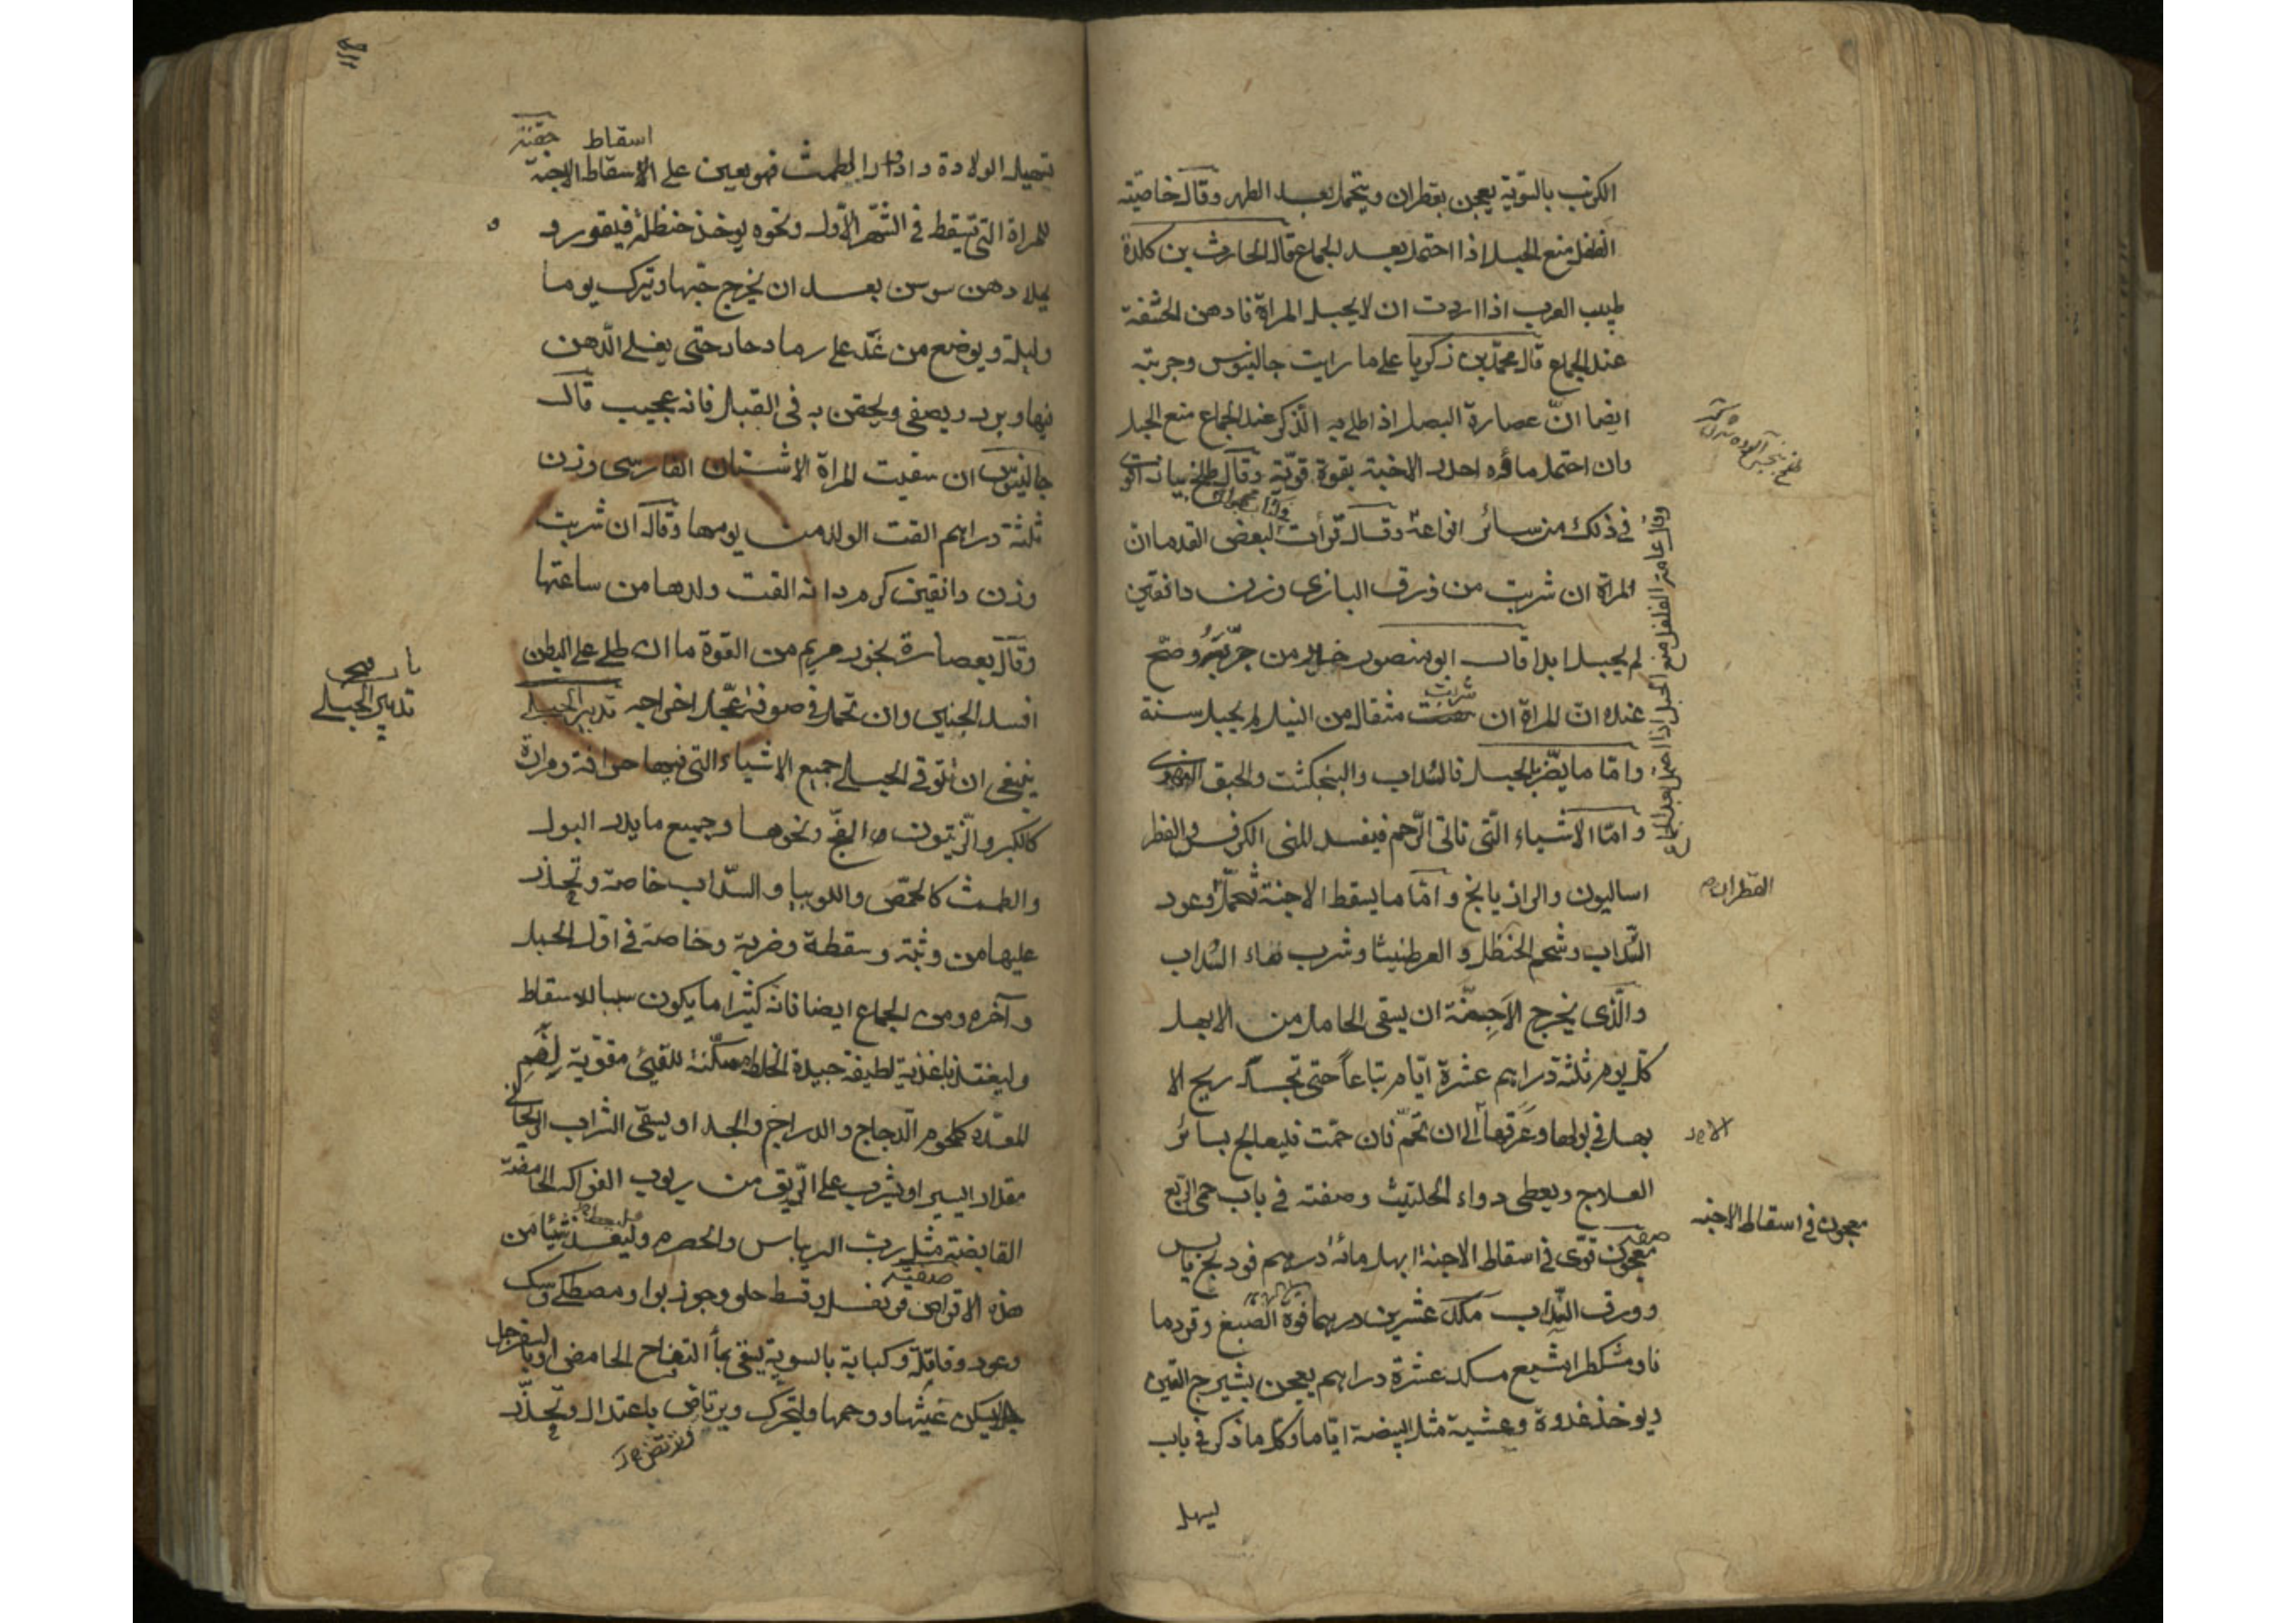 الكرنب بالسوية يعجن بقطران ويتحمل بعد الطهر وقال خاصيته
الفلفل منع الحبل اذا احتمل بعد الجماع قال الحارث بن كلدة
طبيب العرب اذا اردت ان لا يحبل المراة فادهن الحشفة
عند الجماع قال محمد بن زكريا على ما رايت جالينوس وجربته
ايضا انّ عصارة البصل اذ اطلى به الذكر عند الجماع منع الحبل
وان احتمل ماؤه احدر الاجنة بقوة قويّة وقال
في ذلك من سائر انواعه وقال قرأت لبعض القدما ان
المراة ان شربت من ذرق البازى وزن دانقين
لم يحبل ابدا قال ابو منصور من جرّبه وصحّ
عنده انّ المراة ان شربت مثقال من النيل لم يحبل سنة
وامّا ما يضرّ بالحبل فالسّداب والبنجكشت والحبق
وامّا الاشياء الّتى تاتى الرّحم فيفسد المنى الكرفس والفطر
اساليون والرازيانج وامّا ما يسقط الاجنة تحمل عود
السّداب وشحم الحنظل و العرطنيثا وشرب ماء السّداب
والّذى يخرج الاجنّة ان يسقى الحامل من الابهل
كل يوم ثلثة دراهم عشرة ايّام تباعاً حتى تجد ريح الا
بهل فى بولها وعرقها الى ان تحمّ فان حمّت فليعالج بسائر
العلاج ويعطى دواء الحلتيت وصفته فى باب حمى الرّبع
صفة معجون قوّى فى اسقاط الاجنة ابهل مائة درهم فودنج يابس
وورق السّداب مكد عشرين درهما فوّة الصّبغ وقردما
نا ومشكطرامشيع مكد عشرة دراهم يعجن بشيرج التين
ويوخذ غدوة وعشية مثل البيضة ايّاما وكل ما ذكر فى باب
ليهل
وقال عامة الفلفل منع الحبل اذا احتمل بعد الجماع
القطران
الابهل
معجون فى اسقاط الاجنه
اسقاط
تسهيل الولادة وادرار الطمث فهو يعين على الاسقاط الاجنة
للمراة التى تسقط فى الشهر الاوّل ونحوه يوخذ حنظلة فيقور و
يملا دهن سوسن بعد ان يخرج حبّها ويترك يوما
وليلة ويوضع من غد على رماد حار حتى يغلى الدّهن
فيها ويبرد ويصفى ويحقن به فى القبل فانه عجيب قال
جالينوس ان سقيت المراة الاشنان الفارسى وزن
ثلثة دراهم القت الولد من يومها وقال ان شربت
وزن دانقين كرم دانه القت ولدها من ساعتها
وقال بعصارة بخور مريم من القوة ما ان طلى على البطن
افسد الجنين وان تحمل فى صوفة عجّل اخراجه تدبير الحبلى
ينبغى ان توقى الحبلى جميع الاشياء التى فيها حرافة ومرارة
كالكبر والزّيتون الفجّ ونحوها وجميع ما يدر البول
والطمث كالحمّص واللوبيا والسّداب خاصة وتحذر
عليها من وثبة وسقطة وضربة وخاصة فى اوّل الحبل
وآخره ومن الجماع ايضا فانه كثيرا ما يكون سببا للاسقاط
وليغتذ باغذية لطيفة جيدة الخلط مسكّنة للقيئ مقويّة لفم
المعدة كلحوم الدّجاج والدراج والجدا ويسقى الشراب الريحانى
مقدار اليسير ويشرب على الرّيق من ربوب الفواكه الحامضة
القابضة مثل ربّ الريباس والحصرم شيئا من
هذه الاقراص قرنفل وقسط حلو وجوز بوا ومصطكى وسك
صفته
وعود وقاقلة وكبابة بالسوية يسقى بماء التفاح الحامض او
ليسكن غثيها ووحمها وليتحرك ويرتاض باعتدال وتحذّر
تدبير الحبلى